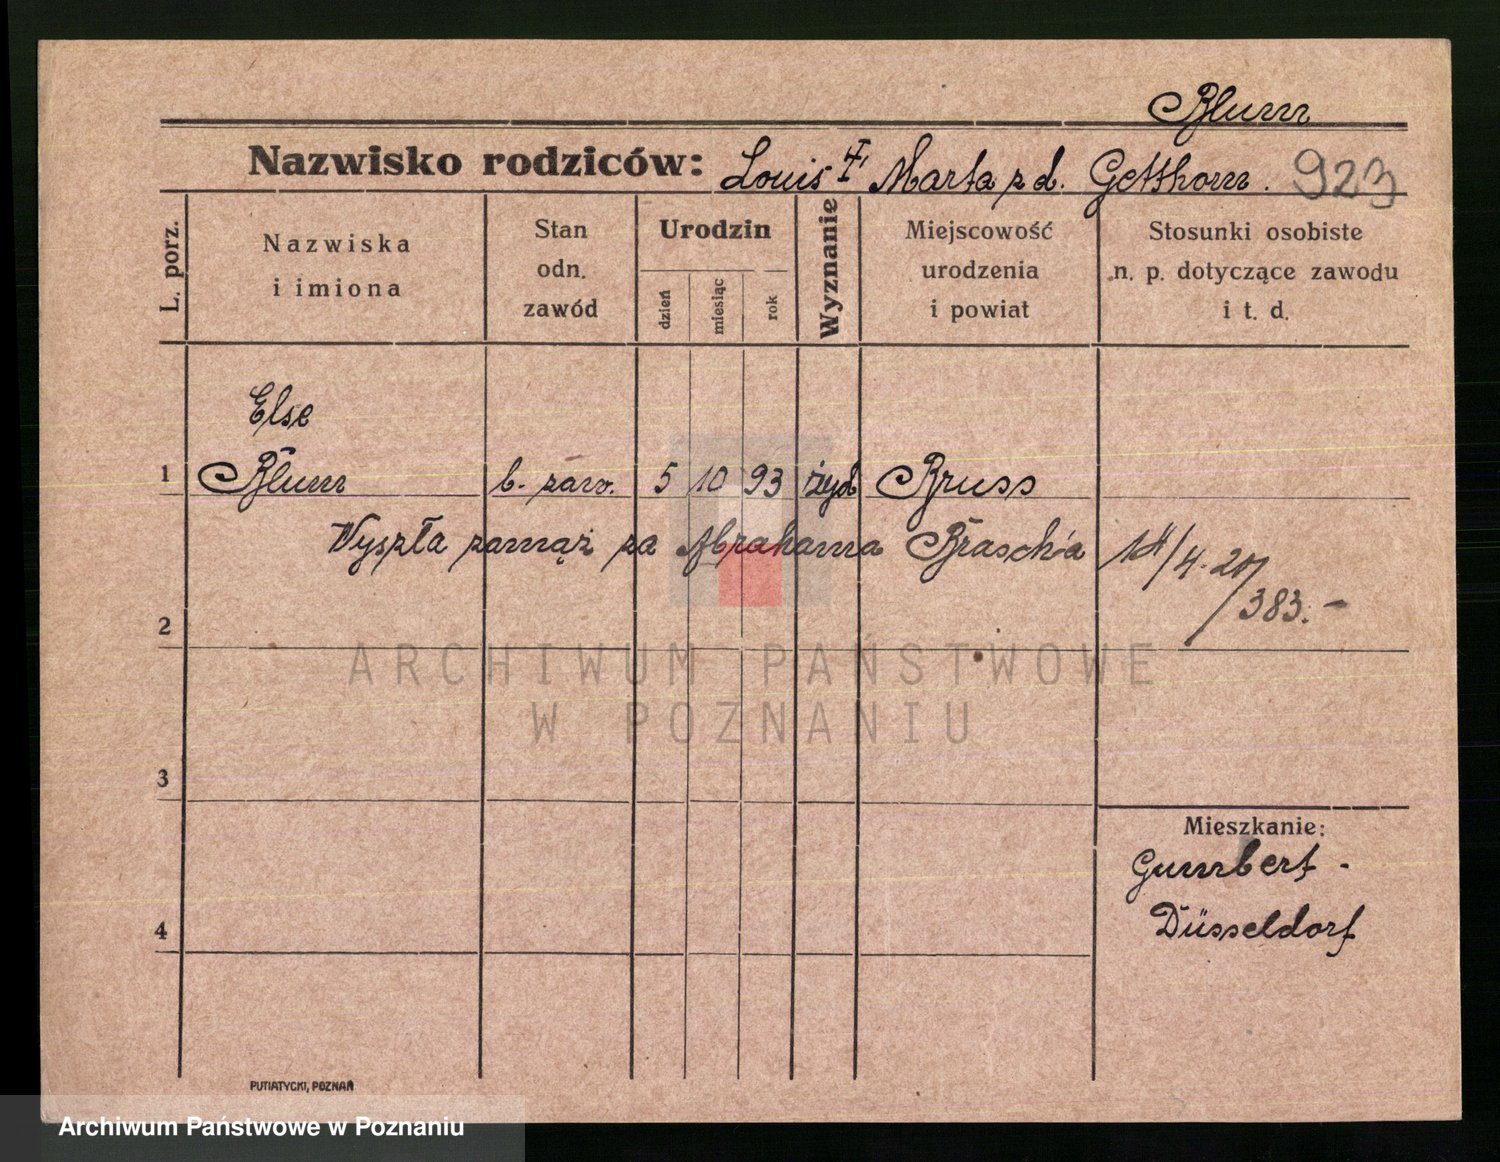 Blum
Nazwisko rodziców: Louis † Marta z d. Getthom. 923
L. porz.
Nazwiska
i imiona
Stan
odn.
zawód
Urodzin
dzień
miesiąc
rok
Wyznanie
Miejscowość
urodzenia
i powiat
Stosunki osobiste
n. p. dotyczące zawodu
i t. d.
Else
1 Blum b. zaw. 5 10 93 żyd Bruss
Wyszła zamąż za Abrahama Brasch'a
/4. 20
383.-
2
ARCHIWUM PAŃSTWOWE
W POZNANIU
3
Mieszkanie:
Gumbert -
Düsseldorf
4
PUTIATYCKI, POZNAŃ
Archiwum Państwowe w Poznaniu